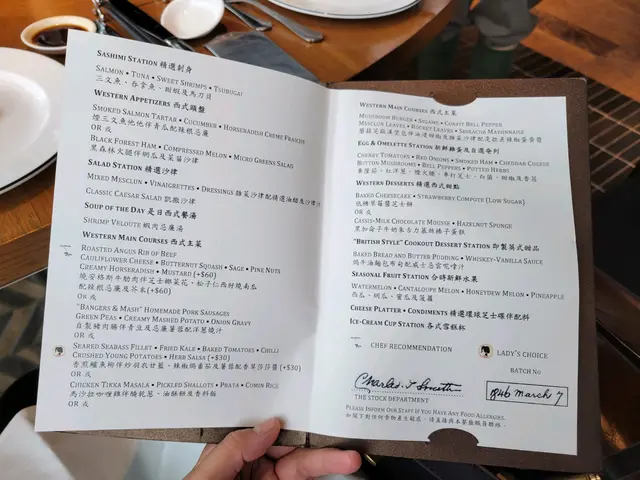 SASHIMI STATION 精選刺身
SALMON • TUNA • SWEET SHRIMPS • TSUBUGAI
三文魚、吞拿魚、甜蝦及馬刀貝
WESTERN APPETIZERS 西式頭盤
SMOKED SALMON TARTAR • CUCUMBER • HORSERADISH CRÈME FRAICHE
煙三文魚他他伴青瓜配辣根忌廉
OR 或
BLACK FOREST HAM • COMPRESSED MELON • MICRO GREENS SALAD
黑森林火腿伴網瓜及菜苗沙律
SALAD STATION 精選沙律
MIXED MESCLUN • VINAIGRETTES • DRESSINGS 雜菜沙律配精選油醋及沙律汁
CLASSIC CAESAR SALAD 凱撒沙律
SOUP OF THE DAY 是日西式餐湯
SHRIMP VELOUTE 蝦肉忌廉湯
WESTERN MAIN COURSES 西式主菜
ROASTED ANGUS RIB OF BEEF
CAULIFLOWER CHEESE • BUTTERNUT SQUASH • SAGE • PINE NUTS
CREAMY HORSERADISH • MUSTARD (+$60)
燒安格斯牛肋肉伴芝士椰菜花、松子仁西封燒南瓜
配辣根忌廉及芥末(+$60)
OR 或
"BANGERS & MASH" HOMEMADE PORK SAUSAGES
GREEN PEAS • CREAMY MASHED POTATO • ONION GRAVY
自製豬肉腸伴青豆及忌廉薯蓉配洋蔥汁
OR 或
SEARED SEABASS FILLET • FRIED KALE • BAKED TOMATOES • CHILLI
CRUSHED YOUNG POTATOES • HERB SALSA (+$30)
香煎鱸魚柳伴炒羽衣甘藍、辣椒焗蕃茄及薯蓉配香草莎莎醬(+$30)
OR 或
CHICKEN TIKKA MASALA • PICKLED SHALLOTS • PRATA • CUMIN RICE
馬沙拉咖喱雞伴醃乾蔥、油酥餅及香料飯
OR 或
WESTERN MAIN COURSES 西式主菜
MUSHROOM BURGER • SESAME • CONFIT BELL PEPPER
MESCLUN LEAVES • ROCKET LEAVES • SRIRACHA MAYONNAISE
EGG & OMELETTE STATION 新鮮雞蛋及自選奄列
CHERRY TOMATOES • RED ONIONS • SMOKED HAM • CHEDDAR CHEESE
BUTTON MUSHROOMS • BELL PEPPERS • POTTED HERBS
車厘茄、紅洋蔥、煙火腿、車打芝士、白菌、甜椒及香草
WESTERN DESSERTS 精選西式甜點
BAKED CHEESECAKE • STRAWBERRY COMPOTE (LOW SUGAR)
低糖草莓醬芝士餅
OR 或
CASSIS-MILK CHOCOLATE MOUSSE • HAZELNUT SPONGE
黑加侖子牛奶朱古力慕絲榛子蛋糕
"BRITISH STYLE" COOKOUT DESSERT STATION 即製英式甜品
BAKED BREAD AND BUTTER PUDDING • WHISKEY-VANILLA SAUCE
焗牛油麵包布甸配威士忌雲呢嗱汁
SEASONAL FRUIT STATION 合時新鮮水果
WATERMELON • CANTALOUPE MELON • HONEYDEW MELON • PINEAPPLE
西瓜、網瓜、蜜瓜及菠蘿
CHEESE PLATTER • CONDIMENTS 精選環球芝士碟伴配料
ICE-CREAM CUP STATION 各式雪糕杯
CHEF RECOMMENDATION
LADY'S CHOICE
BATCH NO
THE STOCK DEPARTMENT
1846 March 7
PLEASE INFORM OUR STAFF IF YOU HAVE ANY FOOD ALLERGIES.
如閣下對任何食物產生敏感，請直接與本餐廳職員聯絡。